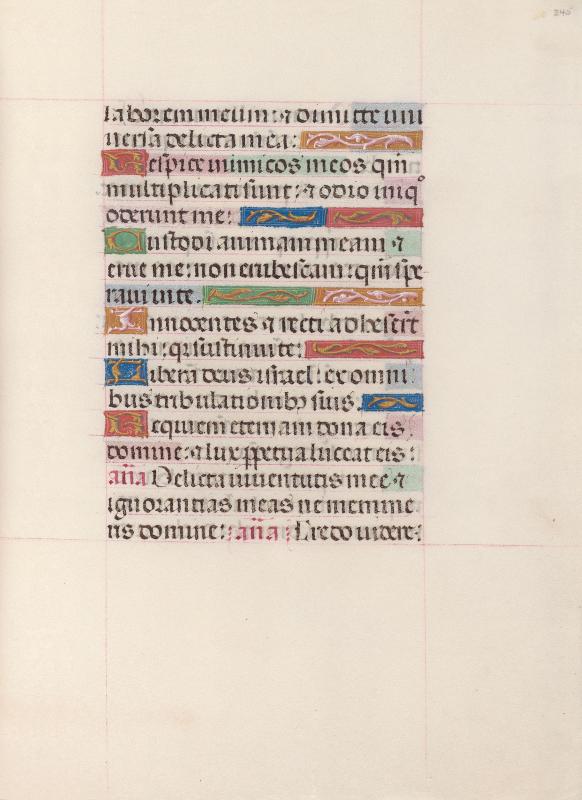 240
laborem meum: ⁊ dimitte uni
uersa delicta mea:
Respice inimicos meos qm̄
multiplicati sunt: ⁊ odio iniqͦ
oderunt me:
Custodi animam meam ⁊
erue me: non erubescam: qm̄ spe
raui in te.
Innocentes ⁊ recti adheserūt
mihi: q̄ sustinui te:
Libera deus israel: ex omni
bus tribulationibꝫ suis.
Requiem eternam dona eis
domine: ⁊ lux ꝑpetua luceat eis:
an̄a Delicta iuuentutis mee ⁊
ignorantias meas ne memine
ris domine: an̄a Credo uidere: